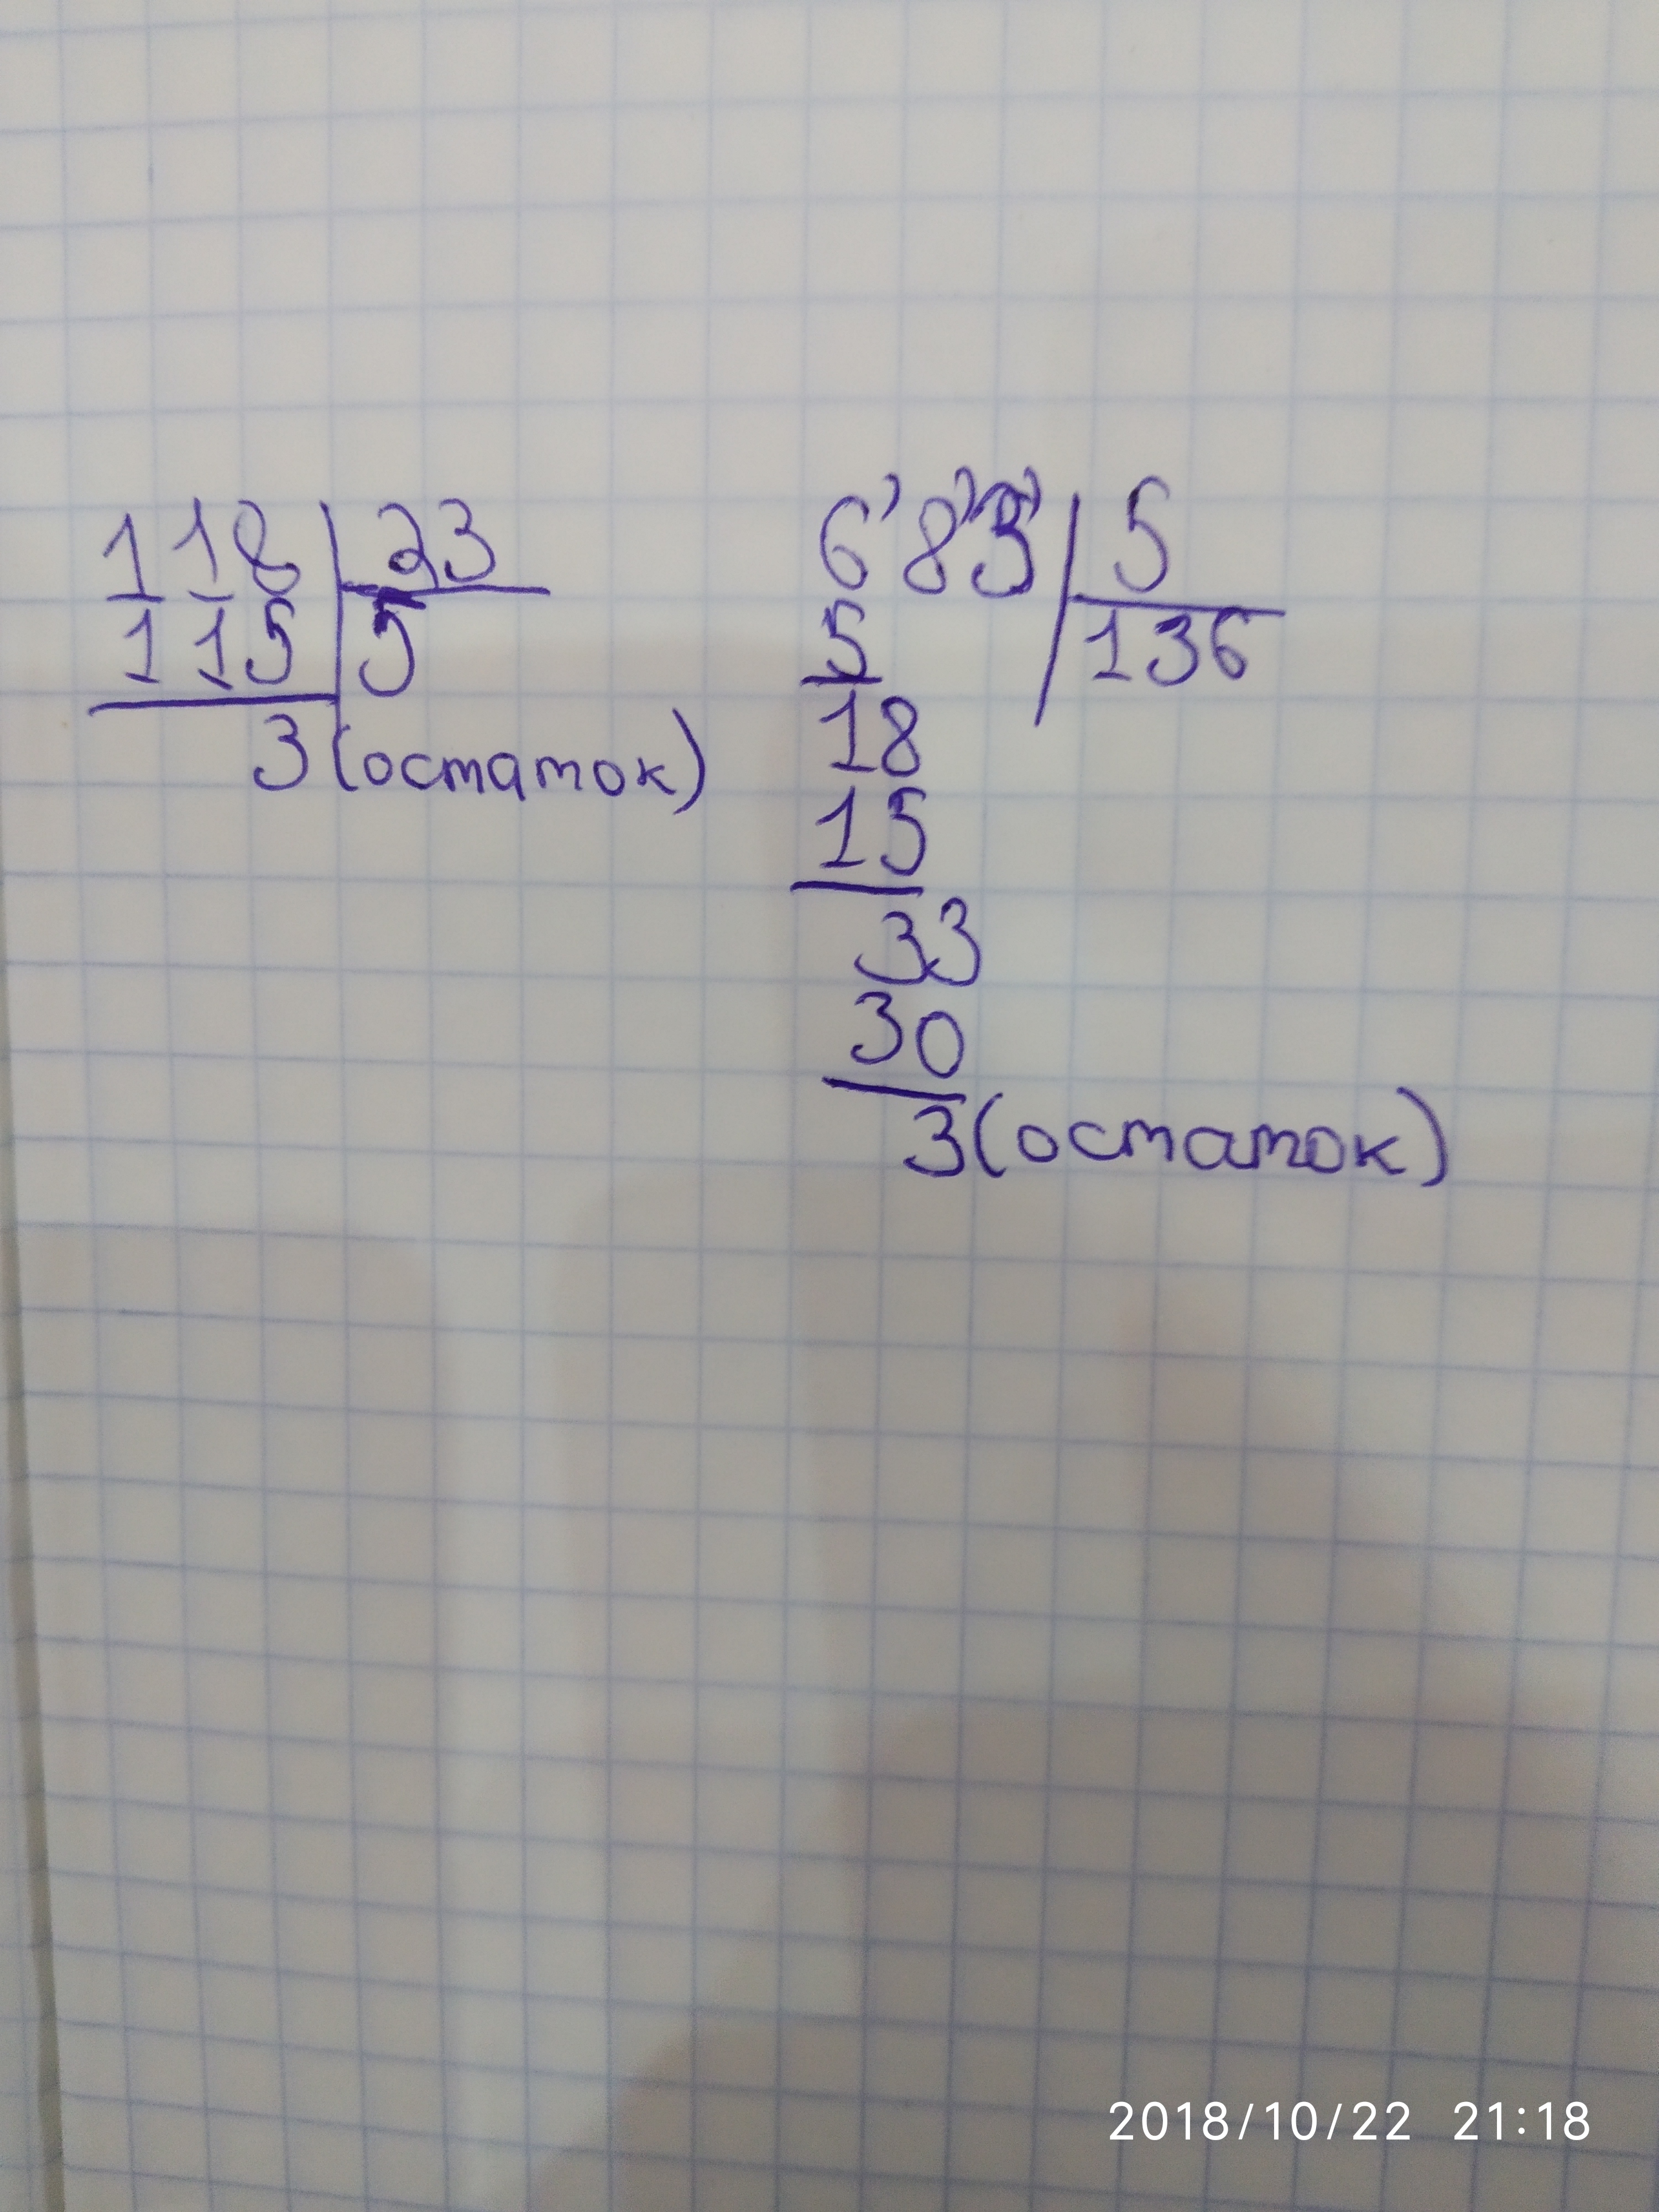 118 23
115 5
3 (остаток)
6'8'3' 5
5 136
18
15
33
30
3 (остаток)
2018/10/22 21:18